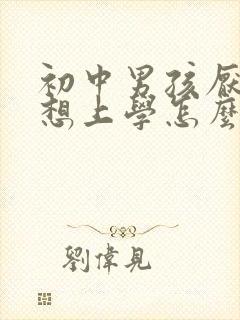 初中男孩厭
想上學怎麼
劉偉見